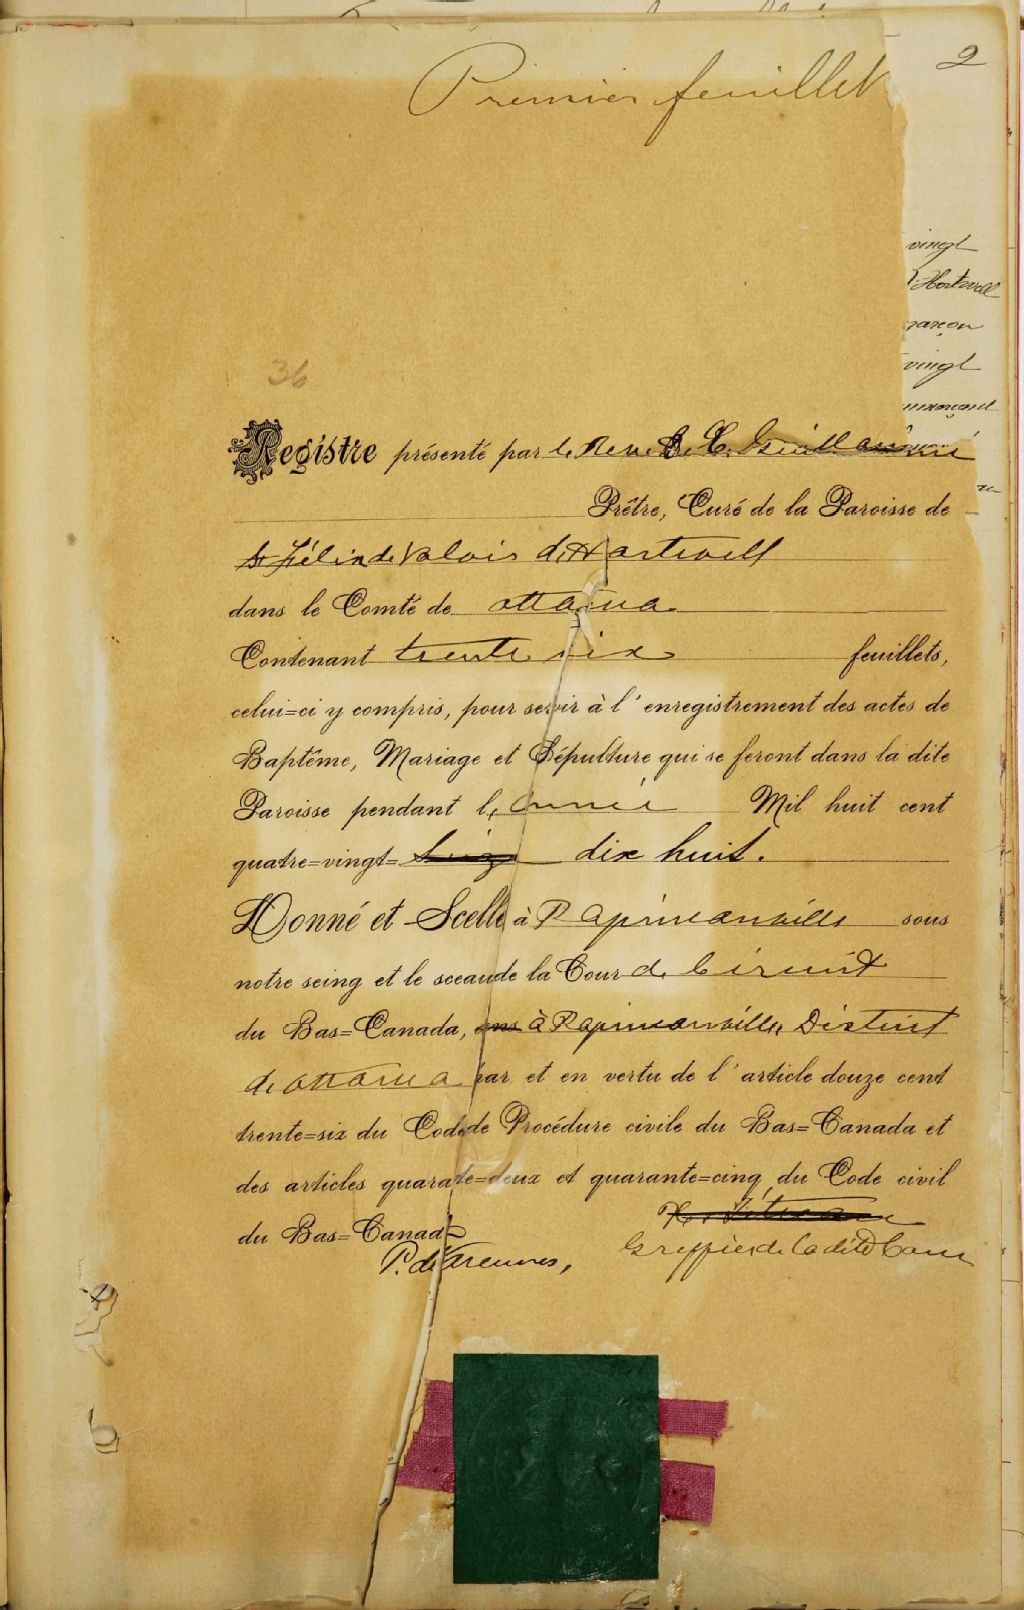 2
Premier feuillet
vingt
Hartwell
garçon
vingt
36
Registre présenté par le Rev.
Prêtre, Curé de la Paroisse de
St Félix de Valois d. Hartwell
dans le Comté de ottawa
Contenant trente six feuillets,
celui=ci y compris, pour servir à l'enregistrement des actes de
Baptême, Mariage et Sépulture qui se feront dans la dite
Paroisse pendant l'année Mil huit cent
quatre=vingt= dix huit.
Donné et Scellé à Papineauville sous
notre seing et le sceau de la Cour de Circuit
du Bas=Canada, à Papineauville District
de ottawa par et en vertu de l'article douze cent
trente=six du Code de Procédure civile du Bas=Canada et
des articles quarate=deux et quarante=cinq du Code civil
du Bas=Canada
Greffier de la dite Cour